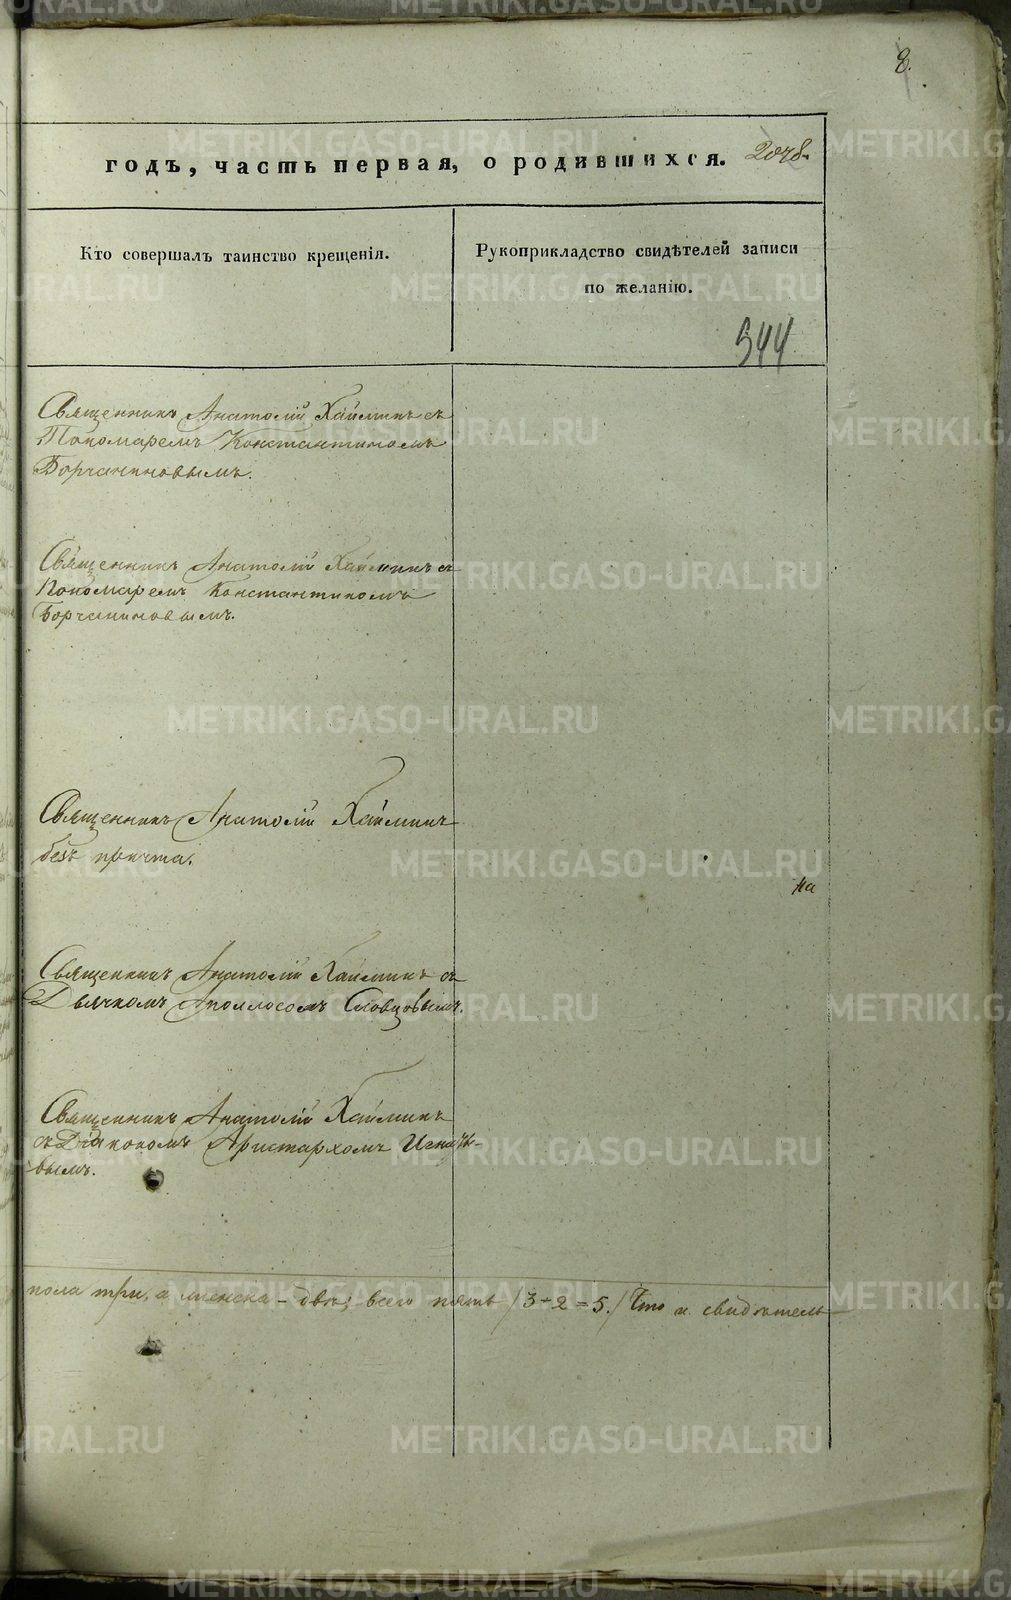 8.
годъ, часть первая, о родившихся. 2048.
Кто совершалъ таинство крещенія.
Рукоприкладство свидѣтелей записи
по желанію.
344
Священникъ Анатолій Хаминъ съ
Пономаремъ Константиномъ
Борчаниновымъ.
Священникъ Анатолій Хаминъ съ
Пономаремъ Константиномъ
Борчаниновымъ.
Священникъ Анатолій Хаминъ
безъ причта.
на
Священникъ Анатолій Хаминъ съ
Дьячкомъ Аполлосомъ Словцовымъ.
Священникъ Анатолій Хаминъ
съ Діакономъ Аристархомъ
вымъ.
пола три, а женска - двѣ, всего пять /3+2=5./ Что и свидѣтель
METRIKI.GASO-URAL.RU